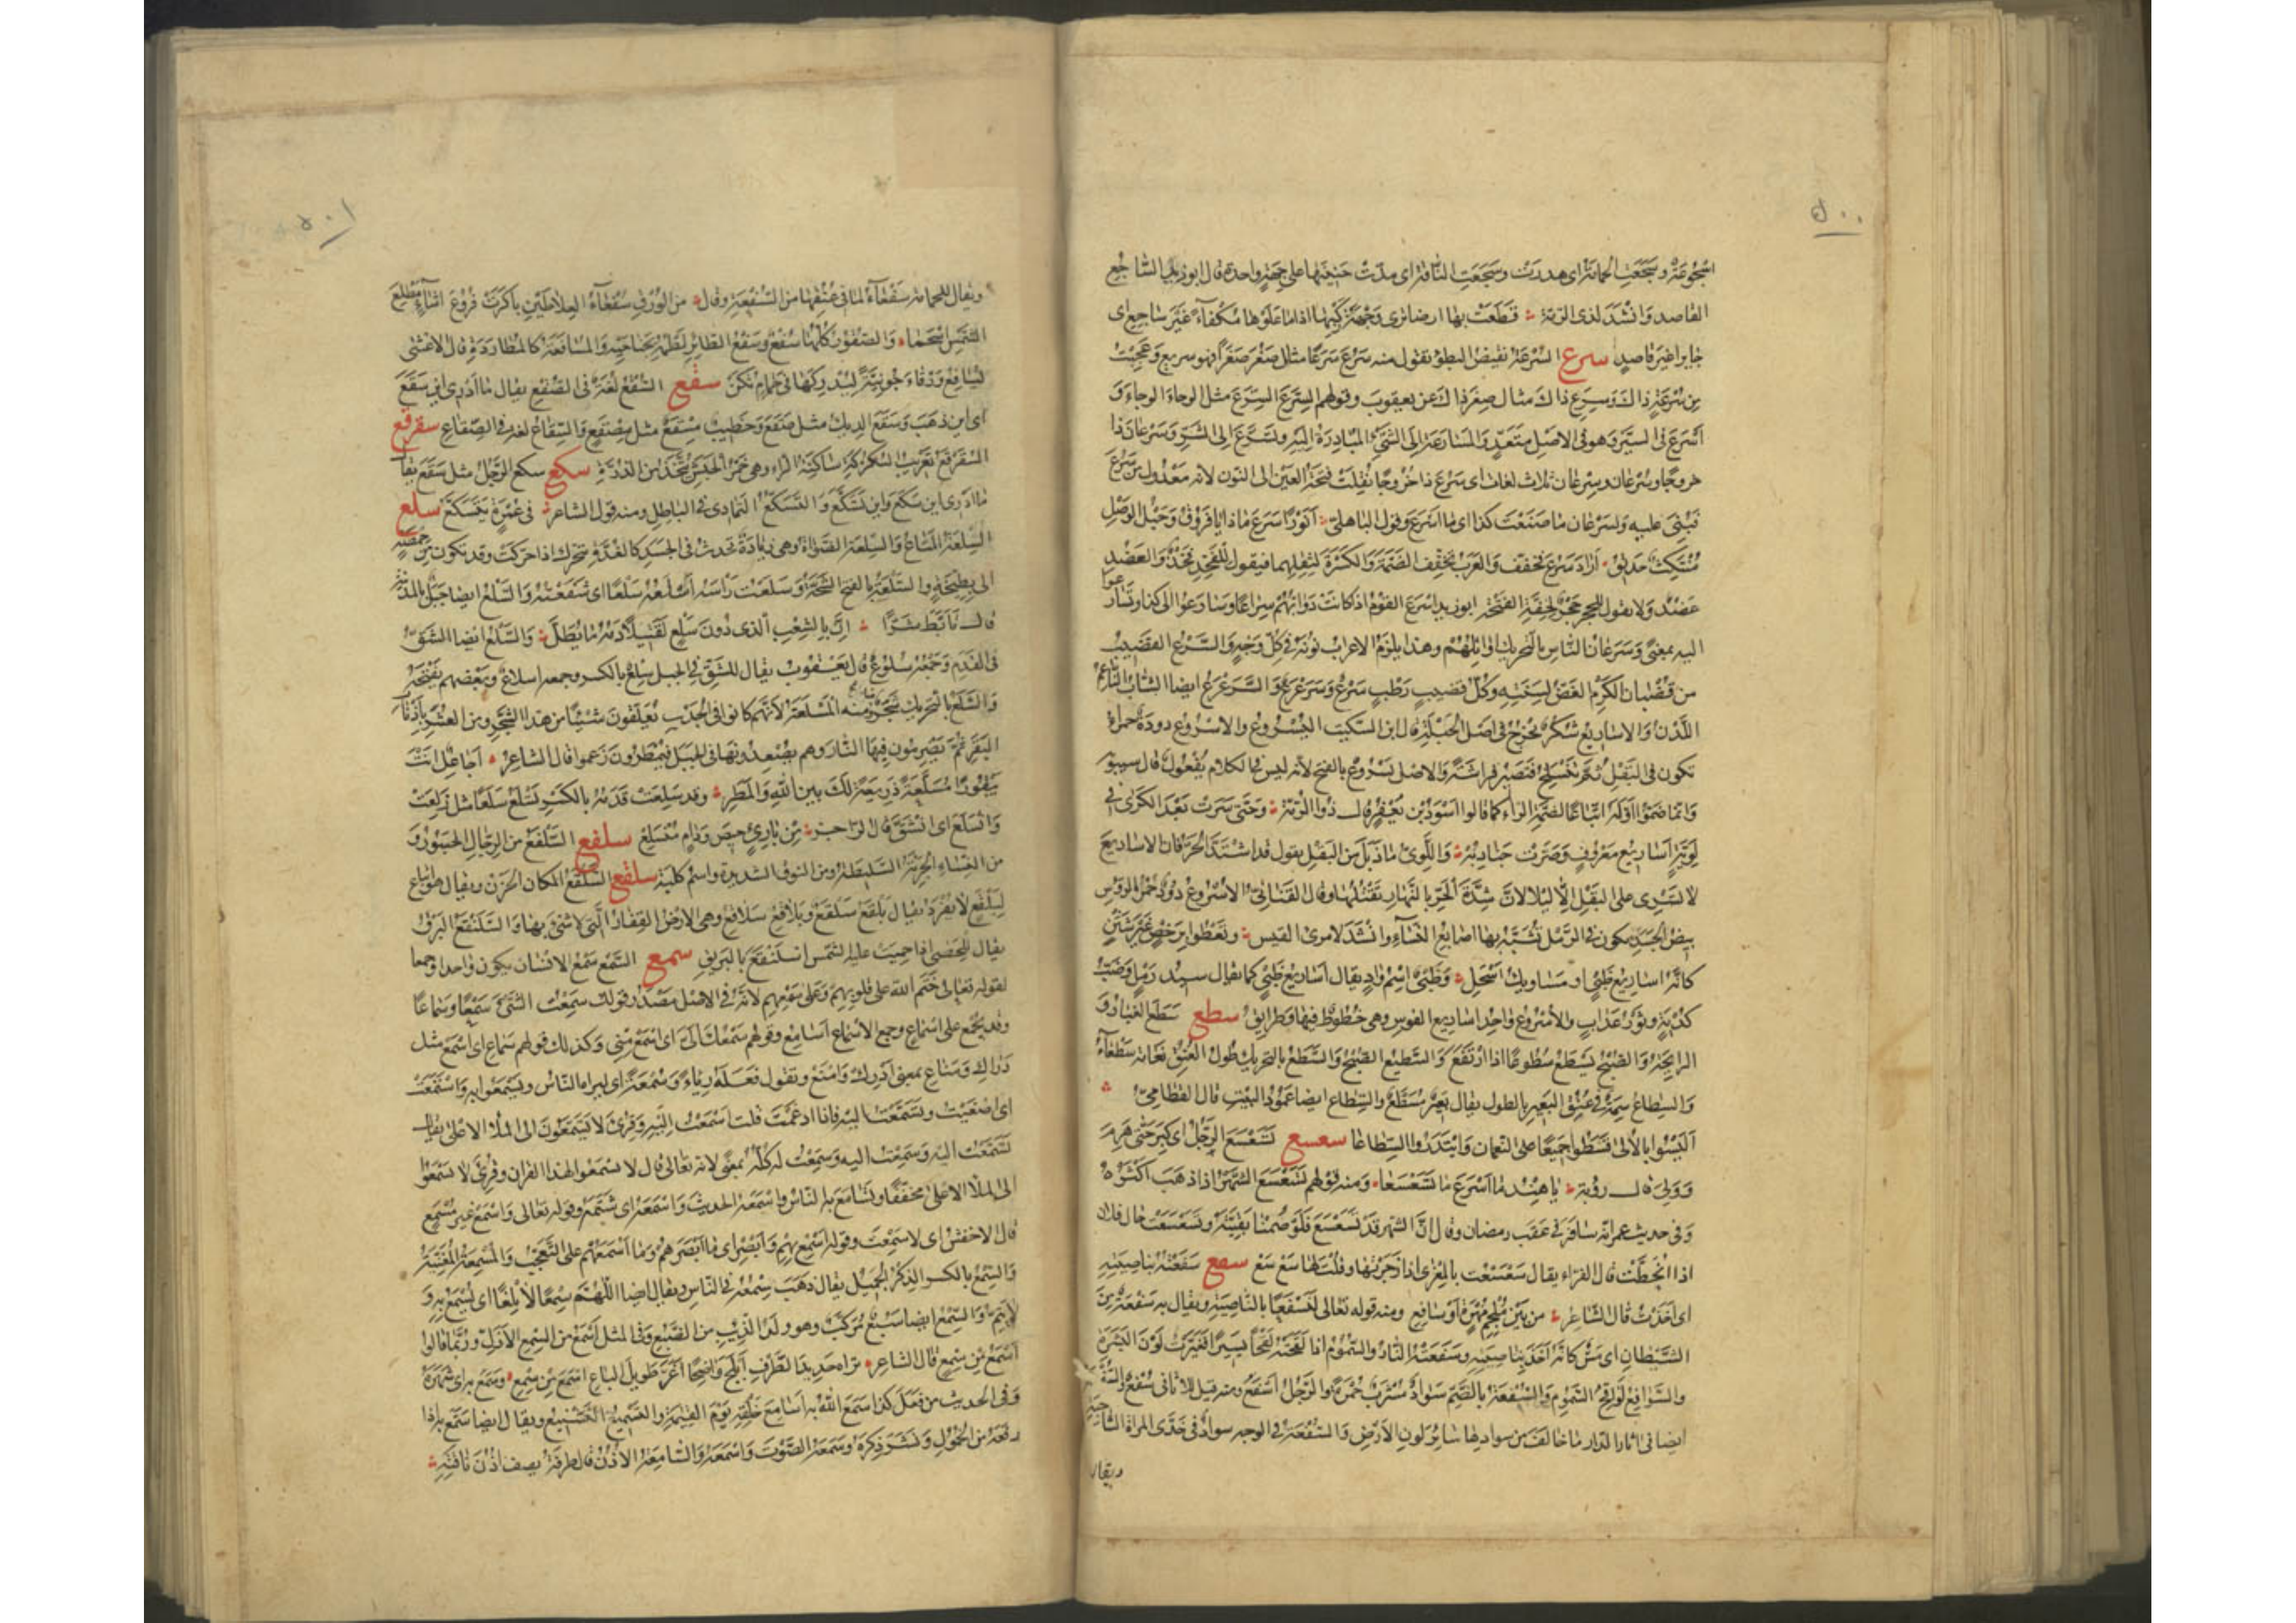 ٥٠٠
اسجوعة وسجعت الحمامة اى هدرت وسجعت الناقة اى مدت حنينها على جهة واحدة قال ابو زيد الساجع
القاصد وانشد لذى الرمة قطعت بها ارضا ترى وجه ركبها اذا ما علوها مكفأ غير ساجع اى
جابرا غير قاصد سرع السرعة نقيض البطؤ تقول منه سرع سرعا مثال صغر صغرا فهو سريع وعجبت
من سرعة ذاك وسرع ذاك مثال صغر ذاك عن يعقوب وقولهم السرع السرع مثل الوحا الوحا و
أسرع فى السير وهو فى الاصل متعد والمسارعة الى الشئ المبادرة اليه وتسرع الى الشر وسرعان ذا
خروجا وسرعان وسرعان ثلاث لغات اى سرع ذا خروجا نقلت فتحة العين الى النون لانه معدول من سرع
فبنى عليه ولسرعان ما صنعت كذا اى ما اسرع وقول الباهلى أنورا سرع ماذا يا فروق وحبل الوصل
منتكث حذيق اراد سرع فخفف والعرب تخفف الضمة والكسرة لثقلهما فيقول للفخذ فخذ وللعضد
عضد ولا تقول للحجر حجر لخفة الفتحة ابو زيد اسرع القوم اذا كانت دوابهم سراعا وسارعوا الى كذا وتسارعوا
اليه بمعنى وسرعان الناس بالتحريك اوائلهم وهذا يلزم الاعراب نونه فى كل وجه والسرع القضيب
من قضبان الكرم الغض لسنته وكل قضيب رطب سرع وسرعرع والسرعرع ايضا الشاب الناعم
اللدن والاساريع شكر تخرج فى اصل الحبلة قال ابن السكيت اليسروع والاسروع دودة حمراء
تكون فى البقل ثم تنسلخ فتصير فراشة والاصل يسروع بالفتح لانه ليس فى الكلام يفعول قال سيبويه
وانما ضموا اوله اتباعا لضمة الراء كما قالوا اسود بن يعفر قال ذو الرمة وحتى سرت بعد الكرى فى
لويه أساريع معروف وصرت جنادبه واللوى ما ذبل من البقل يقول قد اشتد الحر فان الاساريع
لا تسرى على البقل الا ليلا لان شدة الحر بالنهار تقتلها وقال القنانى الاسروع دود حمر الرؤس
بيض الجسد يكون فى الرمل تشبه بها اصابع النساء وانشد لامرئ القيس وتعطو برخص غير شثن
كانه اساريع ظبى او مساويك اسحل وظبى اسم واد يقال اساريع ظبى كما يقال سيد رمل وضب
كدية وثور عداب والاسروع واحد اساريع القوس وهى خطوط فيها وطرايق سطع سطع الغبار و
الرايحة والصبح يسطع سطوعا اذا ارتفع والسطيع الصبح والسطع بالتحريك طول العنق نعامة سطعاء
والسطاع سمة فى عنق البعير بالطول يقال بعير مسطع والسطاع ايضا عمود البيت قال القطامى
أليسوا بالألى قسطوا جميعا على النعمان وابتدروا السطاعا سعسع تسعسع الرجل اى كبر حتى هرم
وولى قال رؤبة يا هند ما اسرع ما تسعسعا ومنه قولهم تسعسع الشهر اذا ذهب اكثره
وفى حديث عمر انه سافر فى عقب رمضان وقال ان الشهر قد تسعسع فلو صمنا بقيته وتسعسعت حال فلان
اذا انحطت قال الفراء يقال سعسعت بالمعزى اذا زجرتها وقلت لها سع سع سفع سفعت بناصيته
اى اخذت قال الشاعر من بين ملجم مهره او سافع ومنه قوله تعالى لنسفعا بالناصية ويقال به سفعة من
الشيطان اى مس كانه اخذ بناصيته وسفعته النار والسموم اذا لفحته لفحا يسيرا فغيرت لون البشرة
والسوافع لوافح السموم والسفعة بالضم سواد مشرب حمرة والرجل اسفع ومنه قيل للاثافى سفع والسفعة
ايضا فى اثار الدار ما خالف من سوادها سائر لون الارض والسفعة فى الوجه سواد فى خدى المراة الشاحبة
ويقال
٥٠١
ويقال للحمامة سفعاء لما فى عنقها من السفعة وقال من الورق سفعاء العلاطين باكرت فروع اشاء مطلع
الشمس اسحما والصقور كلها سفع وسفع الطائر لطمه بجناحيه والمسافعة كالمطاردة قال الاعشى
يسافع ورقاء جونية ليدركها فى حمام ثكن سقع السقع لغة فى الصقع يقال ما ادرى اين سقع
اى اين ذهب وسقع الديك مثل صقع وخطيب مسقع مثل مصقع والسقاع لغة فى الصقاع سقرقع
السقرقع تعريب السكركة ساكنة الراء وهى خمر الحبش تتخذ من الذرة سكع سكع الرجل مثل سقع يقال
ما ادرى اين سكع واين تسكع والتسكع التمادى فى الباطل ومنه قول الشاعر فى غمرة يتسكع سلع
السلعة المتاع والسلعة الضواة وهى زيادة تحدث فى الجسد كالغدة تتحرك اذا حركت وقد تكون من حمصة
الى بطيخة والسلعة بالفتح الشجة وسلعت راسه اسلعه سلعا اى شققته والسلع ايضا جبل بالمدينة
قال تابط شرا ان بالشعب الذى دون سلع لقتيلا دمه ما يطل والسلع ايضا الشق
فى القدم وجمعه سلوع قال يعقوب يقال للشق فى الجبل سلع بالكسر وجمعه اسلاع وبعضهم يفتحه
والسلع بالتحريك شجر مر ومنه المسلعة لانهم كانوا فى الجدب يعلقون شيئا من هذا الشجر ومن العشر باذناب
البقر ثم يضرمون فيها النار وهم يصعدونها فى الجبل فيمطرون زعموا قال الشاعر أجاعل انت
بيقورا مسلعة ذريعة لك بين الله والمطر وقد سلعت قدمه بالكسر تسلع سلعا مثل زلعت
وانسلع اى انشق قال الراجز من بارئ حيص ودام منسلع سلفع السلفع من الرجال الجسور و
من النساء الجريئة السليطة ومن النوق الشديدة واسم كلبة سلقع السلقع المكان الحزن ويقال هو اتباع
لبلقع لا يفرد يقال بلقع سلقع وبلاقع سلاقع وهى الارض القفار التى لا شئ بها والسلنقع البرق
يقال للحصى اذا حميت عليه الشمس اسلنقع بالبريق سمع السمع سمع الانسان يكون واحدا وجمعا
لقوله تعالى ختم الله على قلوبهم وعلى سمعهم لانه فى الاصل مصدر قولك سمعت الشئ سمعا وسماعا
وقد يجمع على اسماع وجمع الاسماع اسامع وقولهم سمعك الى اى اسمع منى وكذلك قولهم سماع اى اسمع مثل
دراك ومناع بمعنى ادرك وامنع وتقول فعله رياء وسمعة اى ليراه الناس ويسمعوا به واستمعت
اى اصغيت وتسمعت اليه فاذا ادغمت قلت اسمعت اليه وقرئ لا يسمعون الى الملأ الاعلى يقال
تسمعت اليه وسمعت اليه وسمعت له كله بمعنى لانه تعالى قال لا تسمعوا لهذا القران وقرئ لا يسمعون
الى الملأ الاعلى مخففا وتسامع به الناس واسمعه الحديث واسمعه اى شتمه وقوله تعالى واسمع غير مسمع
قال الاخفش اى لا سمعت وقوله اسمع بهم وابصر اى ما ابصرهم وما اسمعهم على التعجب والمسمعة المغنية
والسمع بالكسر الذكر الجميل يقال ذهب سمعه فى الناس ويقال ايضا اللهم سمعا لا بلغا اى يسمع به و
لا يتم والسمع ايضا سبع مركب وهو ولد الذيب من الضبع وفى المثل اسمع من السمع الازل وربما قالوا
اسمع من سمع قال الشاعر تراه حديد الطرف ابلج واضحا اغر طويل الباع اسمع من سمع وسمع به اى شهره
وفى الحديث من فعل كذا سمع الله به اسامع خلقه يوم القيمة والتسميع التشنيع ويقال ايضا سمع به اذا
رفعه من الخمول ونشر ذكره وسمعه الصوت واسمعه والسامعة الاذن قال طرفة يصف اذن ناقته